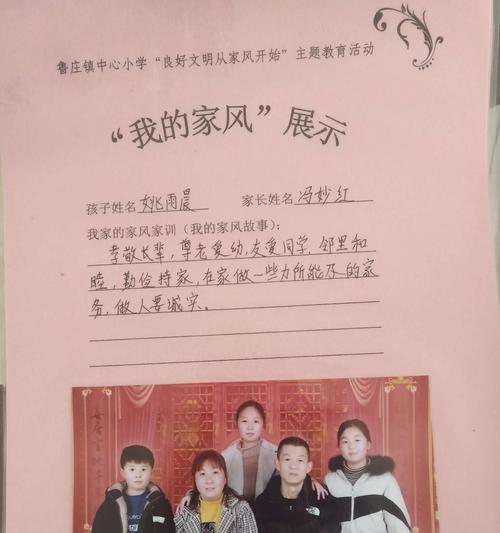 鲁庄镇中心小学“良好文明从家风开始”主题教育活动
“我的家风”展示
孩子姓名 姚雨晨 家长姓名 冯妙红
我家的家风家训（我的家风故事）：
孝敬长辈，尊老爱幼，友爱同学，邻里和
睦，勤俭持家，在家做一些力所能及的家
务，做人要诚实。